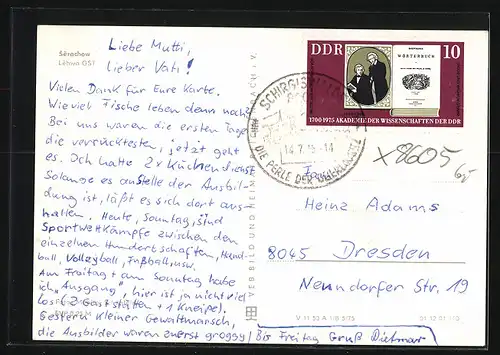 Šěrachow
Lětnwo GST
Liebe Mutti,
lieber Vati!
Vielen Dank für Eure Karte.
Wieviel Fische leben denn noch?
Bei uns waren die ersten Tage
die verrücktesten, jetzt geht
es. Ich hatte 2x Küchendienst
Solange es anstelle der Ausbil-
dung ist, läßt es sich dort aus-
halten. Heute, Sonntag, sind
Sportwettkämpfe zwischen den
einzelnen Hundertschaften, Hand-
ball, Volleyball, Fußball usw.
Am Freitag + am Sonntag habe
ich „Ausgang", hier ist ja nicht viel
los (2 Gaststätten + 1 Kneipe).
Gestern kleiner Gewaltmarsch,
die Ausbilder waren zuerst groggy! Bis Freitag Gruß Dietmar
VEB BILD UND HEIMAT
DDR
10
WÖRTERBUCH
1700 1975 AKADEMIE DER WISSENSCHAFTEN DER DDR
SCHIRGISWALDE
DIE PERLE DER OBERLAUSITZ
14.7.75-14
x8605
Fam.
Heinz Adams
8045 Dresden
Neundorfer Str. 19
V 11 50 A 1/B 515
01 12 01 110